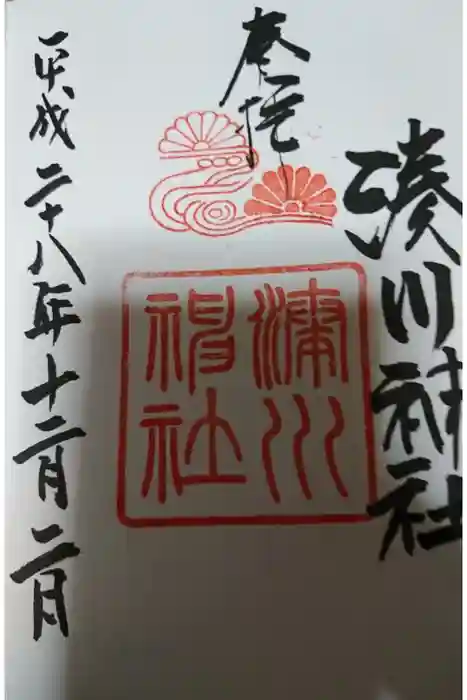 湊川神社
奉拝
湊川
神社
平成二十八年十二月二日